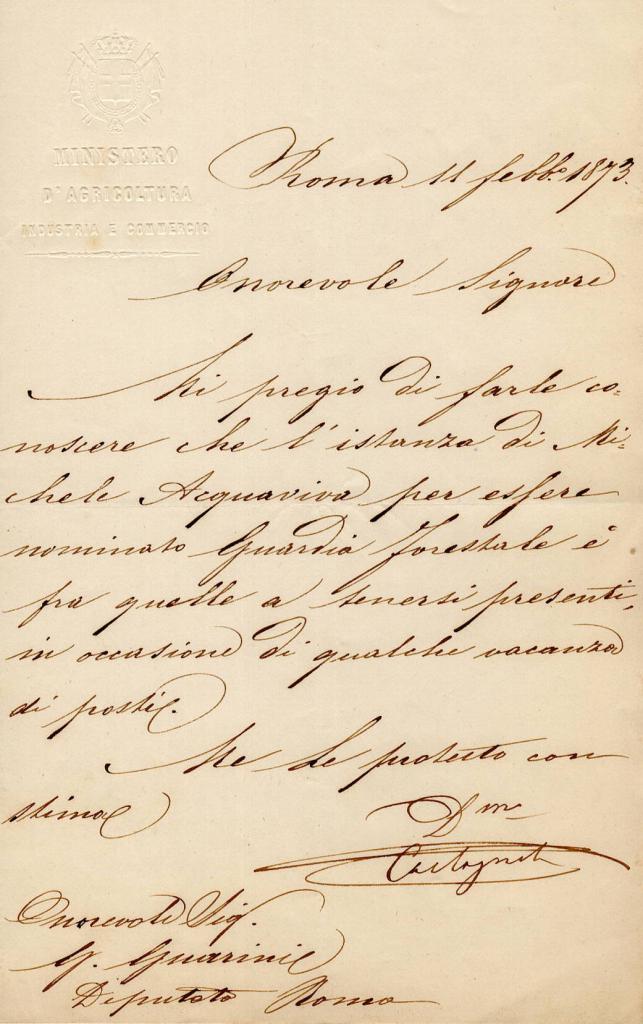 MINISTERO
D'AGRICOLTURA
INDUSTRIA E COMMERCIO
Roma 11 febb.o 1873.
Onorevole Signore
Mi pregio di farle co=
noscere che l'istanza di Mi=
chele Acquaviva per essere
nominato Guardia Forestale è
fra quelle a tenersi presenti,
in occasione di qualche vacanza
di posti.
Me Le protesto con
stima
Dmo
Onorevole Sig.
G. Guarini
Deputato Roma